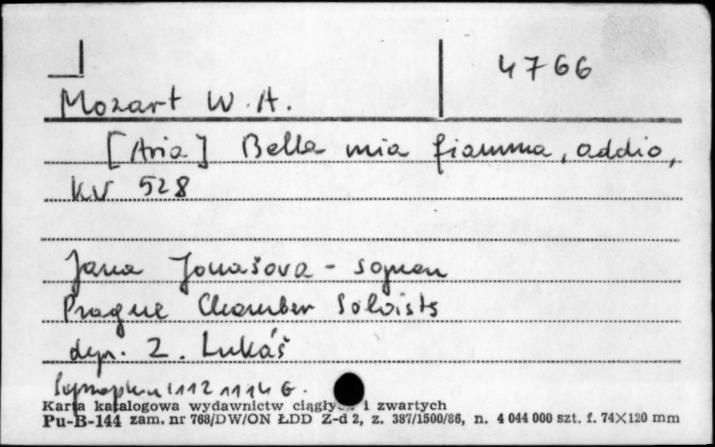 4766
Mozart W. A.
[Aria] Bella mia fiamma, addio,
KV 528
Jana Jonašova - sopran
Prague Chamber Soloists
dyr. Z. Lukáš
Supraphon 1112 1114 G.
Karta katalogowa wydawnictw ciągłych i zwartych
Pu-B-144 zam. nr 768/DW/ON ŁDD Z-d 2, z. 387/1500/86, n. 4 044 000 szt. f. 74×120 mm